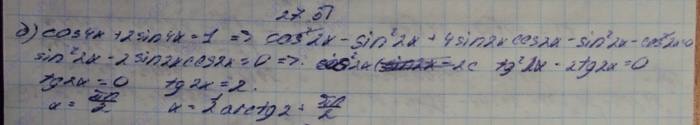 27.51
д) cos4x+2sin4x=1 => cos²2x-sin²2x+4sin2xcos2x-sin²2x-cos²2x=0
sin²2x-2sin2xcos2x=0 => tg²2x-2tg2x=0
tg2x=0 tg2x=2.
x=πn/2 x=1/2arctg2+πn/2